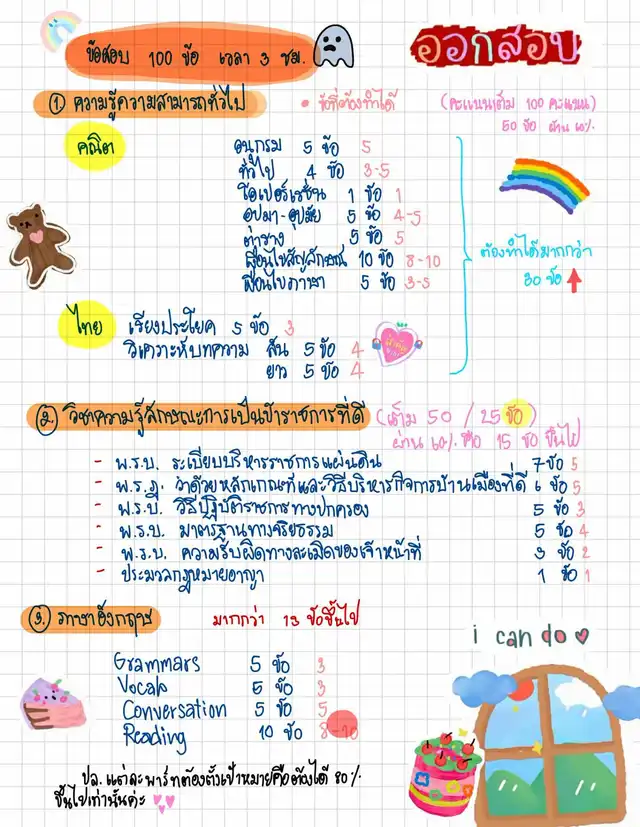 ข้อสอบ 100 ข้อ เวลา 3 ชม.
ออกสอบ
① ความรู้ความสามารถทั่วไป
• ข้อที่ต้องทำได้
(คะแนนเต็ม 100 คะแนน)
50 ข้อ ผ่าน 60%
คณิต
อนุกรม 5 ข้อ 5
ทั่วไป 4 ข้อ 3-5
โอเปอร์เรชั่น 1 ข้อ 1
อุปมา-อุปมัย 5 ข้อ 4-5
ตาราง 5 ข้อ 5
เงื่อนไขสัญลักษณ์ 10 ข้อ 8-10
เงื่อนไขภาษา 5 ข้อ 3-5
ต้องทำได้มากกว่า
30 ข้อ ↑
ไทย เรียงประโยค 5 ข้อ 3
วิเคราะห์บทความ สั้น 5 ข้อ 4
ยาว 5 ข้อ 4
② วิชาความรู้ลักษณะการเป็นข้าราชการที่ดี (เต็ม 50 / 25 ข้อ)
ผ่าน 60% คือ 15 ข้อ ขึ้นไป
- พ.ร.บ. ระเบียบบริหารราชการแผ่นดิน 7 ข้อ 5
- พ.ร.ฎ. ว่าด้วยหลักเกณฑ์และวิธีบริหารกิจการบ้านเมืองที่ดี 6 ข้อ 5
- พ.ร.บ. วิธีปฏิบัติราชการทางปกครอง 5 ข้อ 3
- พ.ร.บ. มาตรฐานทางจริยธรรม 5 ข้อ 4
- พ.ร.บ. ความรับผิดทางละเมิดของเจ้าหน้าที่ 3 ข้อ 2
- ประมวลกฎหมายอาญา 1 ข้อ 1
③ ภาษาอังกฤษ มากกว่า 13 ข้อขึ้นไป
Grammars 5 ข้อ 3
Vocab 5 ข้อ 3
Conversation 5 ข้อ 5
Reading 10 ข้อ 8-10
i can do ♥
ปล. แต่ละพาร์ทต้องตั้งเป้าหมายคือต้องได้ 80%
ขึ้นไปเท่านั้นค่ะ